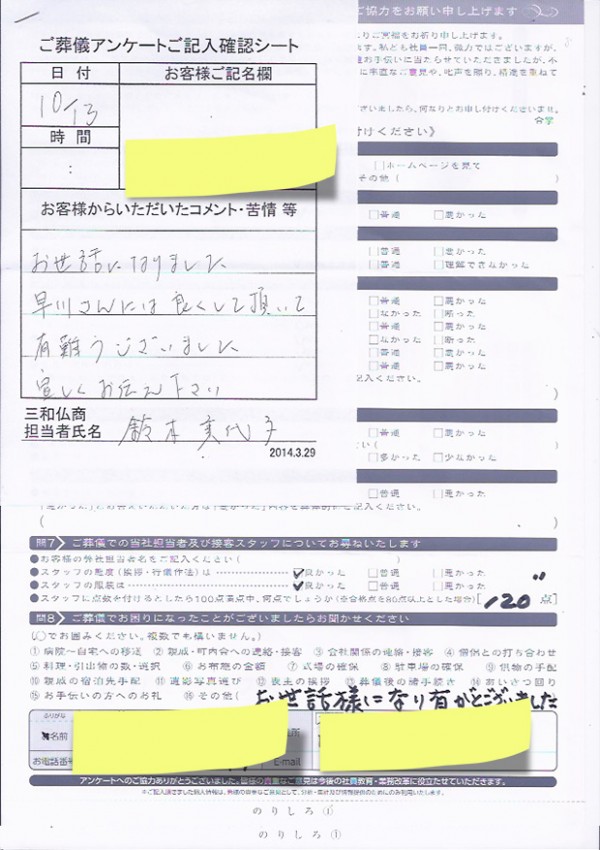 ご葬儀アンケートご記入確認シート
日付
お客様ご記名欄
10/13
時間
:
お客様からいただいたコメント・苦情 等
お世話になりました
早川さんには良くして頂いて
有難うございました
宜しくお伝え下さい
三和仏商
担当者氏名 鈴木美代子
2014.3.29
ご協力をお願い申し上げます
付けください》
□ホームページを見て
その他(
□普通 □悪かった
□普通 □悪かった
□普通 □理解できなかった
□普通 □悪かった
□なかった □断った
□普通 □悪かった
□なかった □断った
□普通 □悪かった
□普通 □悪かった
記入ください。
□普通 □悪かった
□多かった □少なかった
□普通 □悪かった
問7 ご葬儀での当社担当者及び接客スタッフについてお尋ねいたします
●お客様の弊社担当者名をご記入ください(
●スタッフの態度(挨拶・行儀作法)は ☑良かった □普通 □悪かった
●スタッフの服装は ☑良かった □普通 □悪かった
●スタッフに点数を付けるとしたら100点満点中、何点でしょうか(※合格点を80点以上とした場合)[120点]
問8 ご葬儀でお困りになったことがございましたらお聞かせください
(○でお囲みください。複数でも構いません。)
①病院〜自宅への移送 ②親戚・町内会への連絡・接客 ③会社関係の連絡・接客 ④僧侶との打ち合わせ
⑤料理・引出物の数・選択 ⑥お布施の金額 ⑦式場の確保 ⑧駐車場の確保 ⑨供物の手配
⑩親戚の宿泊先手配 ⑪遺影写真選び ⑫喪主の挨拶 ⑬葬儀後の諸手続き ⑭あいさつ回り
⑮お手伝いの方へのお礼 ⑯その他( お世話様になり有がとございました
ふりがな
お名前
お電話番号
E-mail
アンケートへのご協力ありがとうございました。皆様の貴重なご意見は今後の社員教育・業務改革に役立たせていただきます。
のりしろ①
のりしろ①